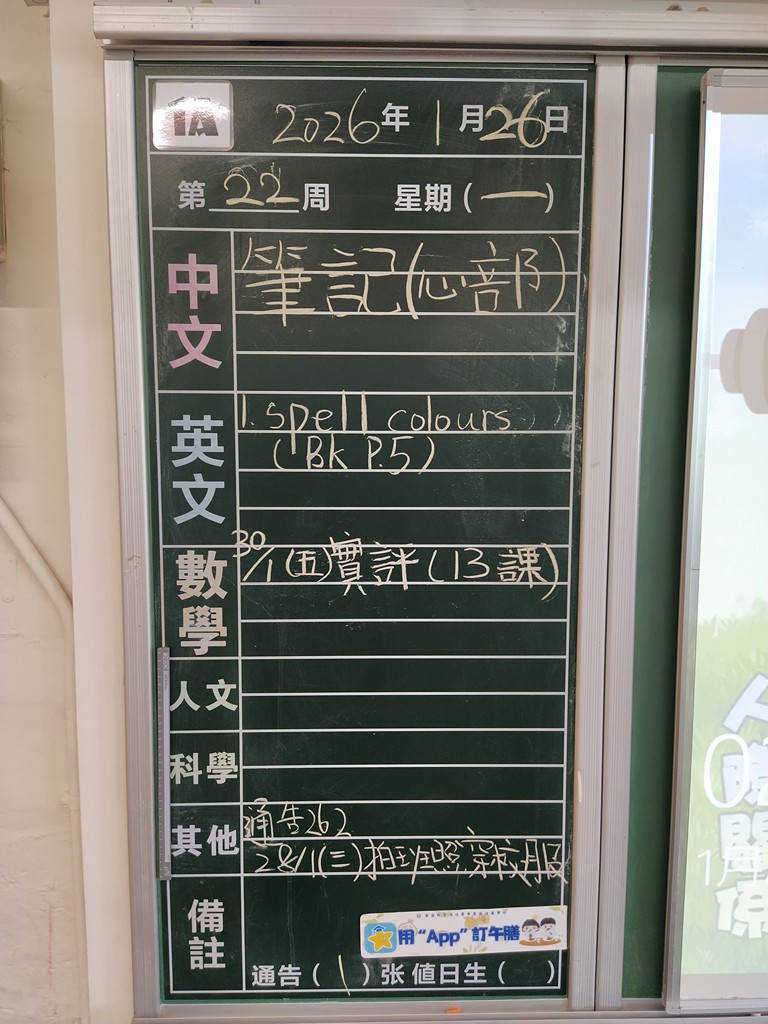 1A 2026年1月26日
第22周 星期(一)
中文 筆記(心部)
英文 1. spell colours
(Bk P.5)
數學 30/1(五)實評(13課)
人文
科學
其他 通告262
28/1(三)拍班照穿校服
備註
用“App”訂午膳
通告(1)张 值日生( )